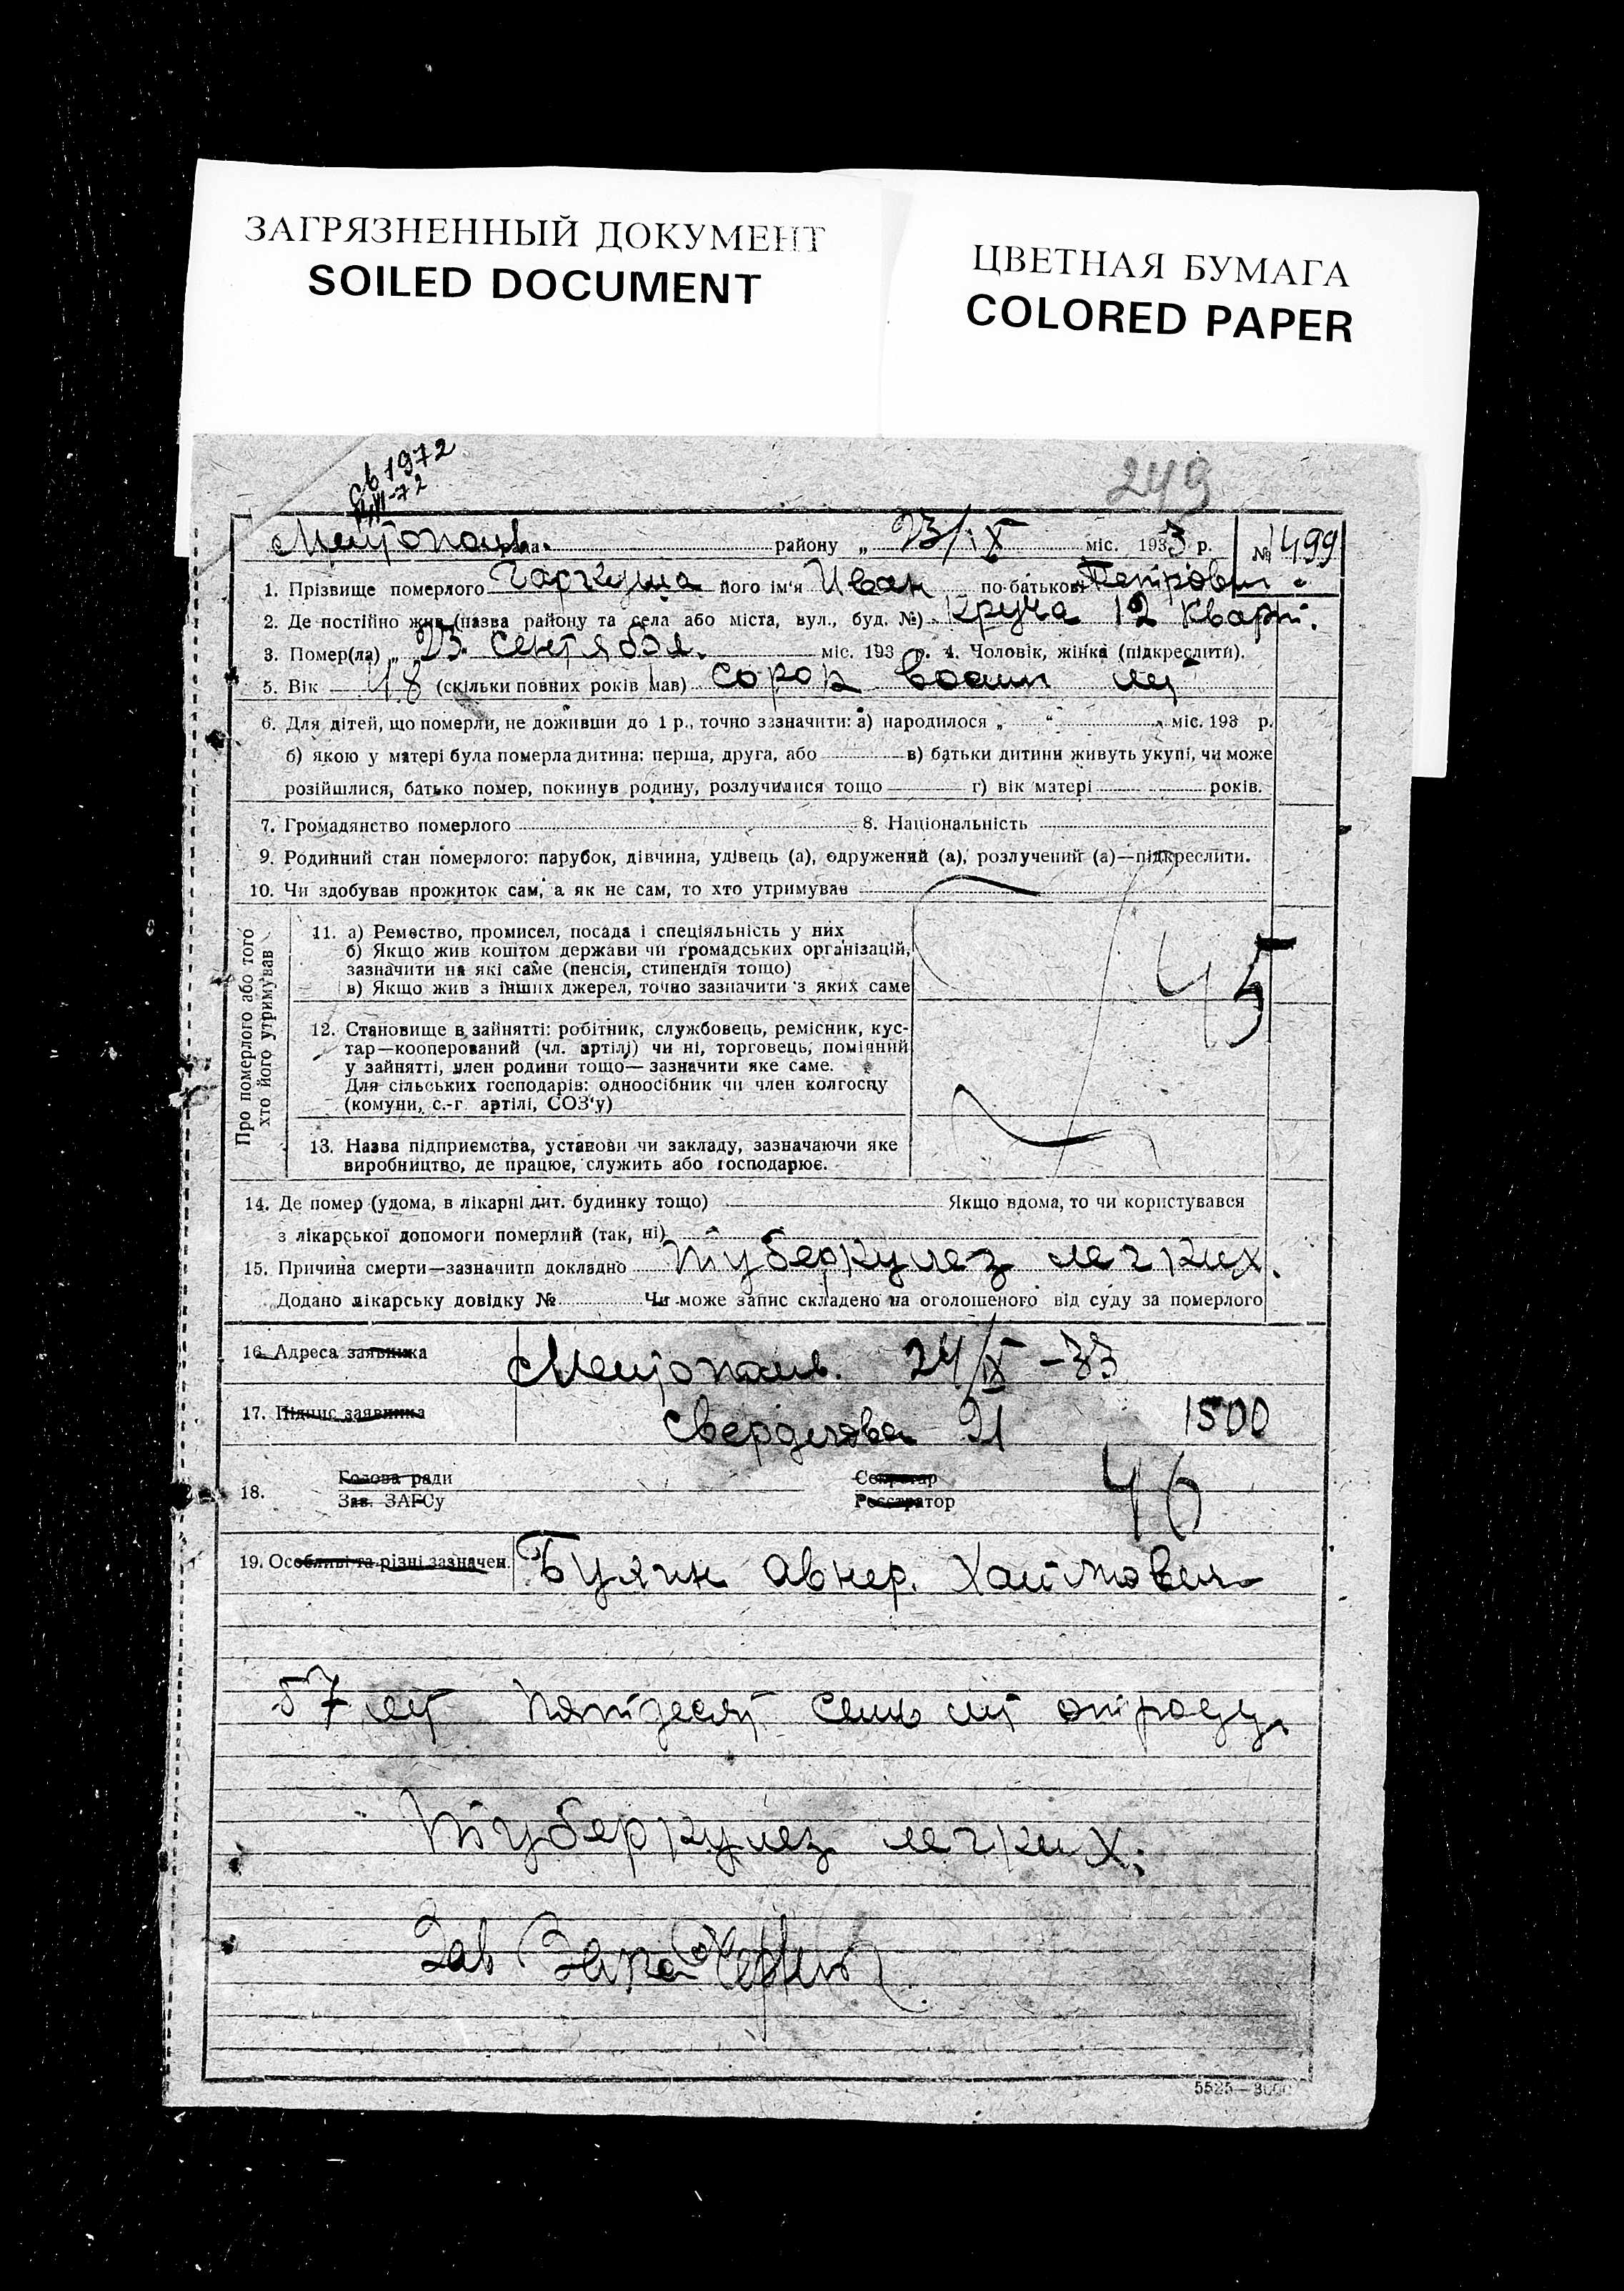 ЗАГРЯЗНЕННЫЙ ДОКУМЕНТ
SOILED DOCUMENT
ЦВЕТНАЯ БУМАГА
COLORED PAPER
св 1972
249
Мелітополь рада району „ 23/IX міс. 1933 р. № 1499
1. Прізвище померлого Гаркуша його ім'я Иван по-батькові Петрович
2. Де постійно жив (назва району та села або міста, вул., буд. №) Круча 12 Кварт.
3. Помер(ла) „ 23 сентября. міс. 193 р. 4. Чоловік, жінка (підкреслити).
5. Вік 48 (скільки повних років мав) сорок восим лет
6. Для дітей, що померли, не доживши до 1 р., точно зазначити: а) народилося „ “ міс. 193 р.
б) якою у матері була померла дитина: перша, друга, або в) батьки дитини живуть укупі, чи може
розійшлися, батько помер, покинув родину, розлучилися тощо г) вік матері років.
7. Громадянство померлого 8. Національність
9. Родинний стан померлого: парубок, дівчина, удівець (а), одружений (а), розлучений (а)—підкреслити.
10. Чи здобував прожиток сам, а як не сам, то хто утримував
Про померлого або того
хто його утримував
11. а) Ремество, промисел, посада і спеціяльність у них
б) Якщо жив коштом держави чи громадських організацій,
зазначити на які саме (пенсія, стипендія тощо)
в) Якщо жив з інших джерел, точно зазначити з яких саме
45
12. Становище в зайнятті: робітник, службовець, ремісник, кус-
тар—кооперований (чл. артілі) чи ні, торговець, помічний
у зайнятті, член родини тощо— зазначити яке саме.
Для сільських господарів: одноосібник чи член колгоспу
(комуни, с.-г артілі, СОЗ'у)
13. Назва підприємства, установи чи закладу, зазначаючи яке
виробництво, де працює, служить або господарює.
14. Де помер (удома, в лікарні дит. будинку тощо) Якщо вдома, то чи користувався
з лікарської допомоги померлий (так, ні)
15. Причина смерти—зазначити докладно туберкулез легких.
Додано лікарську довідку № Чи може запис складено на оголошеного від суду за померлого
16. Адреса заявника Мелітополь. 24/IX-33
17. Підпис заявника Свердлова 21 1500
18. Голова ради Секретар 46
Зав. ЗАГСу Реєстратор
19. Особливі та різні зазначен. Буякин Авнер. Хаимович
57 лет пятдесят семь лет отроду.
туберкулез легких.
Зав
5525—3000